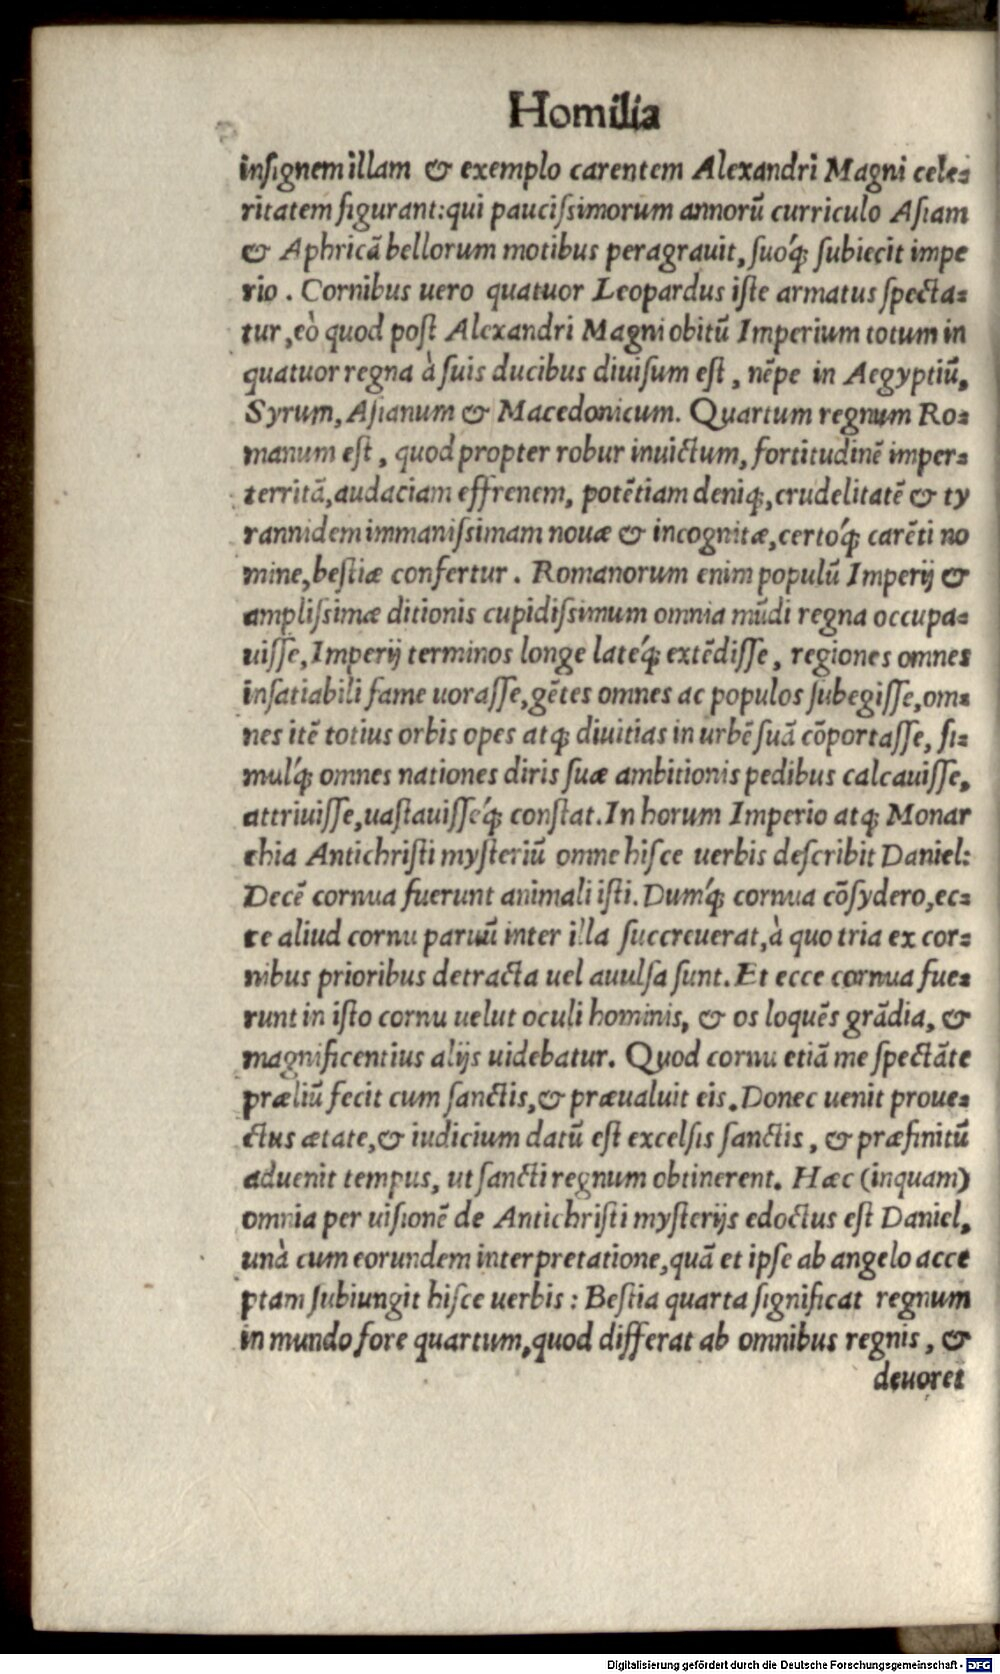 Homilia
inſignem illam & exemplo carentem Alexandri Magni cele-
ritatem figurant: qui pauciſsimorum annorū curriculo Aſiam
& Aphricā bellorum motibus peragrauit, ſuoq́; ſubiecit impe
rio. Cornibus uero quatuor Leopardus iſte armatus ſpecta-
tur, eò quod poſt Alexandri Magni obitū Imperium totum in
quatuor regna à ſuis ducibus diuiſum eſt, nēpe in Aegyptiū,
Syrum, Aſianum & Macedonicum. Quartum regnum Ro-
manum eſt, quod propter robur inuictum, fortitudinē imper-
territā, audaciam effrenem, potētiam deniq;, crudelitatē & ty
rannidem immaniſsimam nouæ & incognitæ, certoq́; carēti no
mine, beſtiæ confertur. Romanorum enim populū Imperij &
ampliſsimæ ditionis cupidiſsimum omnia mūdi regna occupa-
uiſſe, Imperij terminos longe lateq́; extēdiſſe, regiones omnes
inſatiabili fame uoraſſe, gētes omnes ac populos ſubegiſſe, om-
nes itē totius orbis opes atq; diuitias in urbē ſuā cōportaſſe, ſi-
mulq́; omnes nationes diris ſuæ ambitionis pedibus calcauiſſe,
attriuiſſe, uaſtauiſſeq́; conſtat. In horum Imperio atq; Monar
chia Antichriſti myſteriū omne hiſce uerbis deſcribit Daniel:
Decē cornua fuerunt animali iſti. Dumq́; cornua cōſydero, ec-
ce aliud cornu paruū inter illa ſuccreuerat, à quo tria ex cor-
nibus prioribus detracta uel auulſa ſunt. Et ecce cornua fue-
runt in iſto cornu uelut oculi hominis, & os loquēs grādia, &
magnificentius alijs uidebatur. Quod cornu etiā me ſpectāte
præliū fecit cum ſanctis, & præualuit eis. Donec uenit proue-
ctus ætate, & iudicium datū eſt excelſis ſanctis, & præfinitū
aduenit tempus, ut ſancti regnum obtinerent. Hæc (inquam)
omnia per uiſionē de Antichriſti myſterijs edoctus eſt Daniel,
unà cum eorundem interpretatione, quā et ipſe ab angelo acce
ptam ſubiungit hiſce uerbis: Beſtia quarta ſignificat regnum
in mundo fore quartum, quod differat ab omnibus regnis, &
deuoret
Digitalisierung gefördert durch die Deutsche Forschungsgemeinschaft - DFG